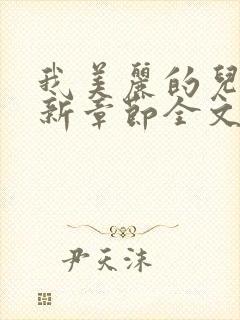 我美麗的兒
新章節全文
尹天沫